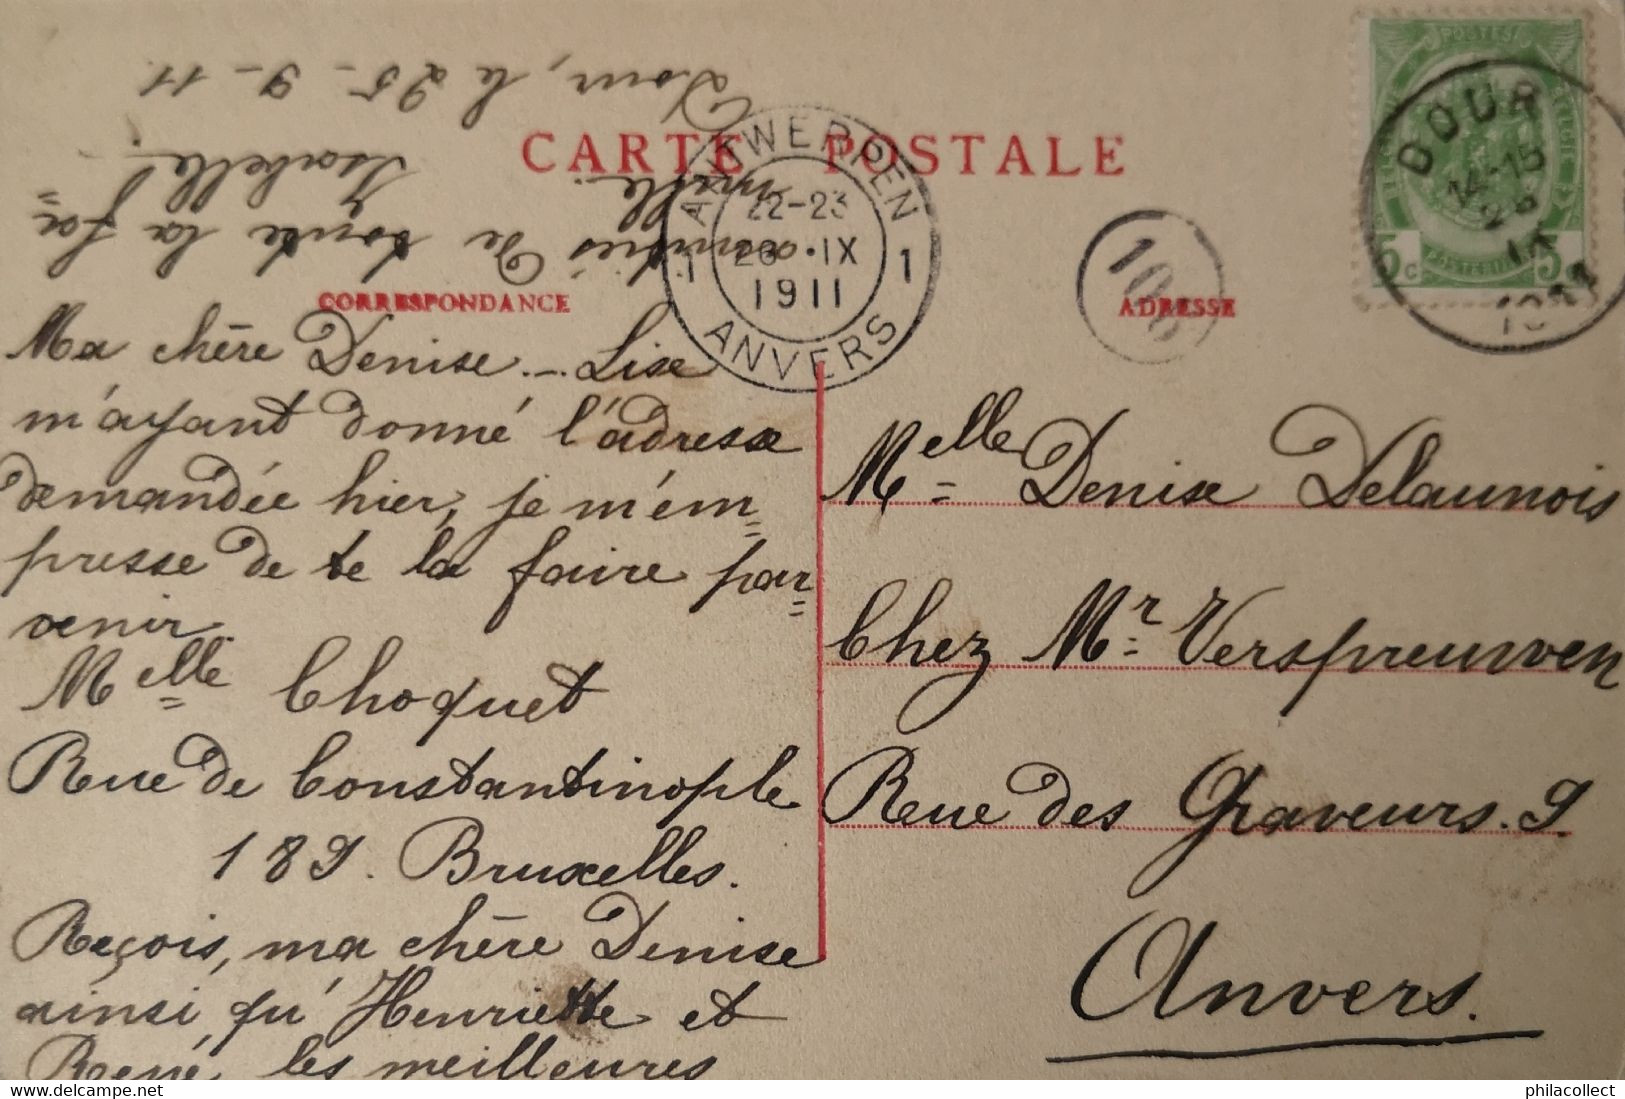 Dour, le 25-9-11.
CARTE POSTALE
CORRESPONDANCE
ADRESSE
Ma chère Denise.... Lise
m'ayant donné l'adresse
demandée hier, je m'em=
presse de te la faire par=
venir.
Melle Choquet
Rue de Constantinople
189. Bruxelles.
Reçois, ma chère Denise
ainsi qu'Henriette et
René, les meilleures
amitiés de toute la fa=
mille.
Isabelle.
Melle Denise Delaunois
Chez Mr Verspreuwen
Rue des Graveurs. 9.
Anvers.
ANTWERPEN
22-23
1 IX 1
1911
ANVERS
DOUR
14-15
IX
POSTES
5c 5c
philacollect